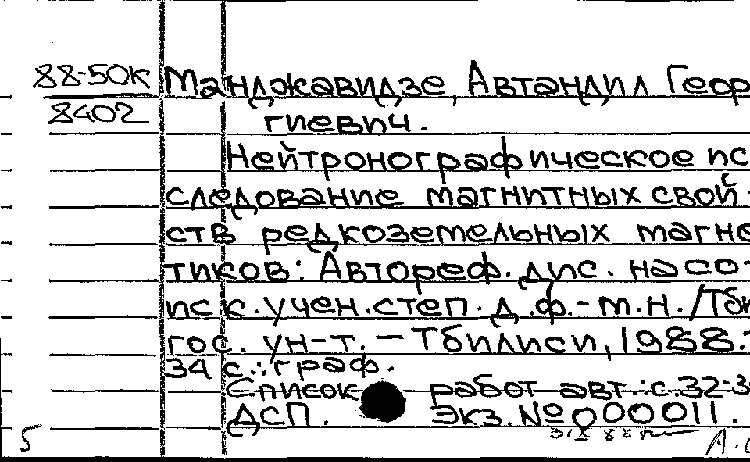 88-50к Манджавидзе, Автандил Геор
8402 гиевич.
Нейтронографическое ис
следование магнитных свой-
ств редкоземельных магне
тиков: Автореф. дис. на со-
иск. учен. степ. д.ф.-м.н./Тби
гос. ун-т. - Тбилиси, 1988.-
34 с.: граф.
Список работ авт.: с. 32-3
ДСП. Экз. № 000011.
5 А.